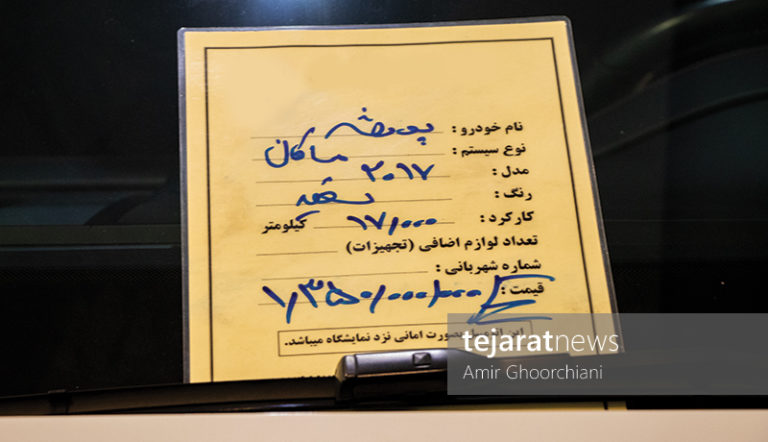 نام خودرو : پورشه
نوع سیستم : ماکان
مدل : ۲۰۱۷
رنگ : سفید
کارکرد : ۱۷/۰۰۰ کیلومتر
تعداد لوازم اضافی (تجهیزات)
شماره شهربانی :
قیمت : ۱/۳۵۰/۰۰۰/۰۰۰
این بصورت امانی نزد نمایشگاه میباشد.
tejaratnews
Amir Ghoorchiani